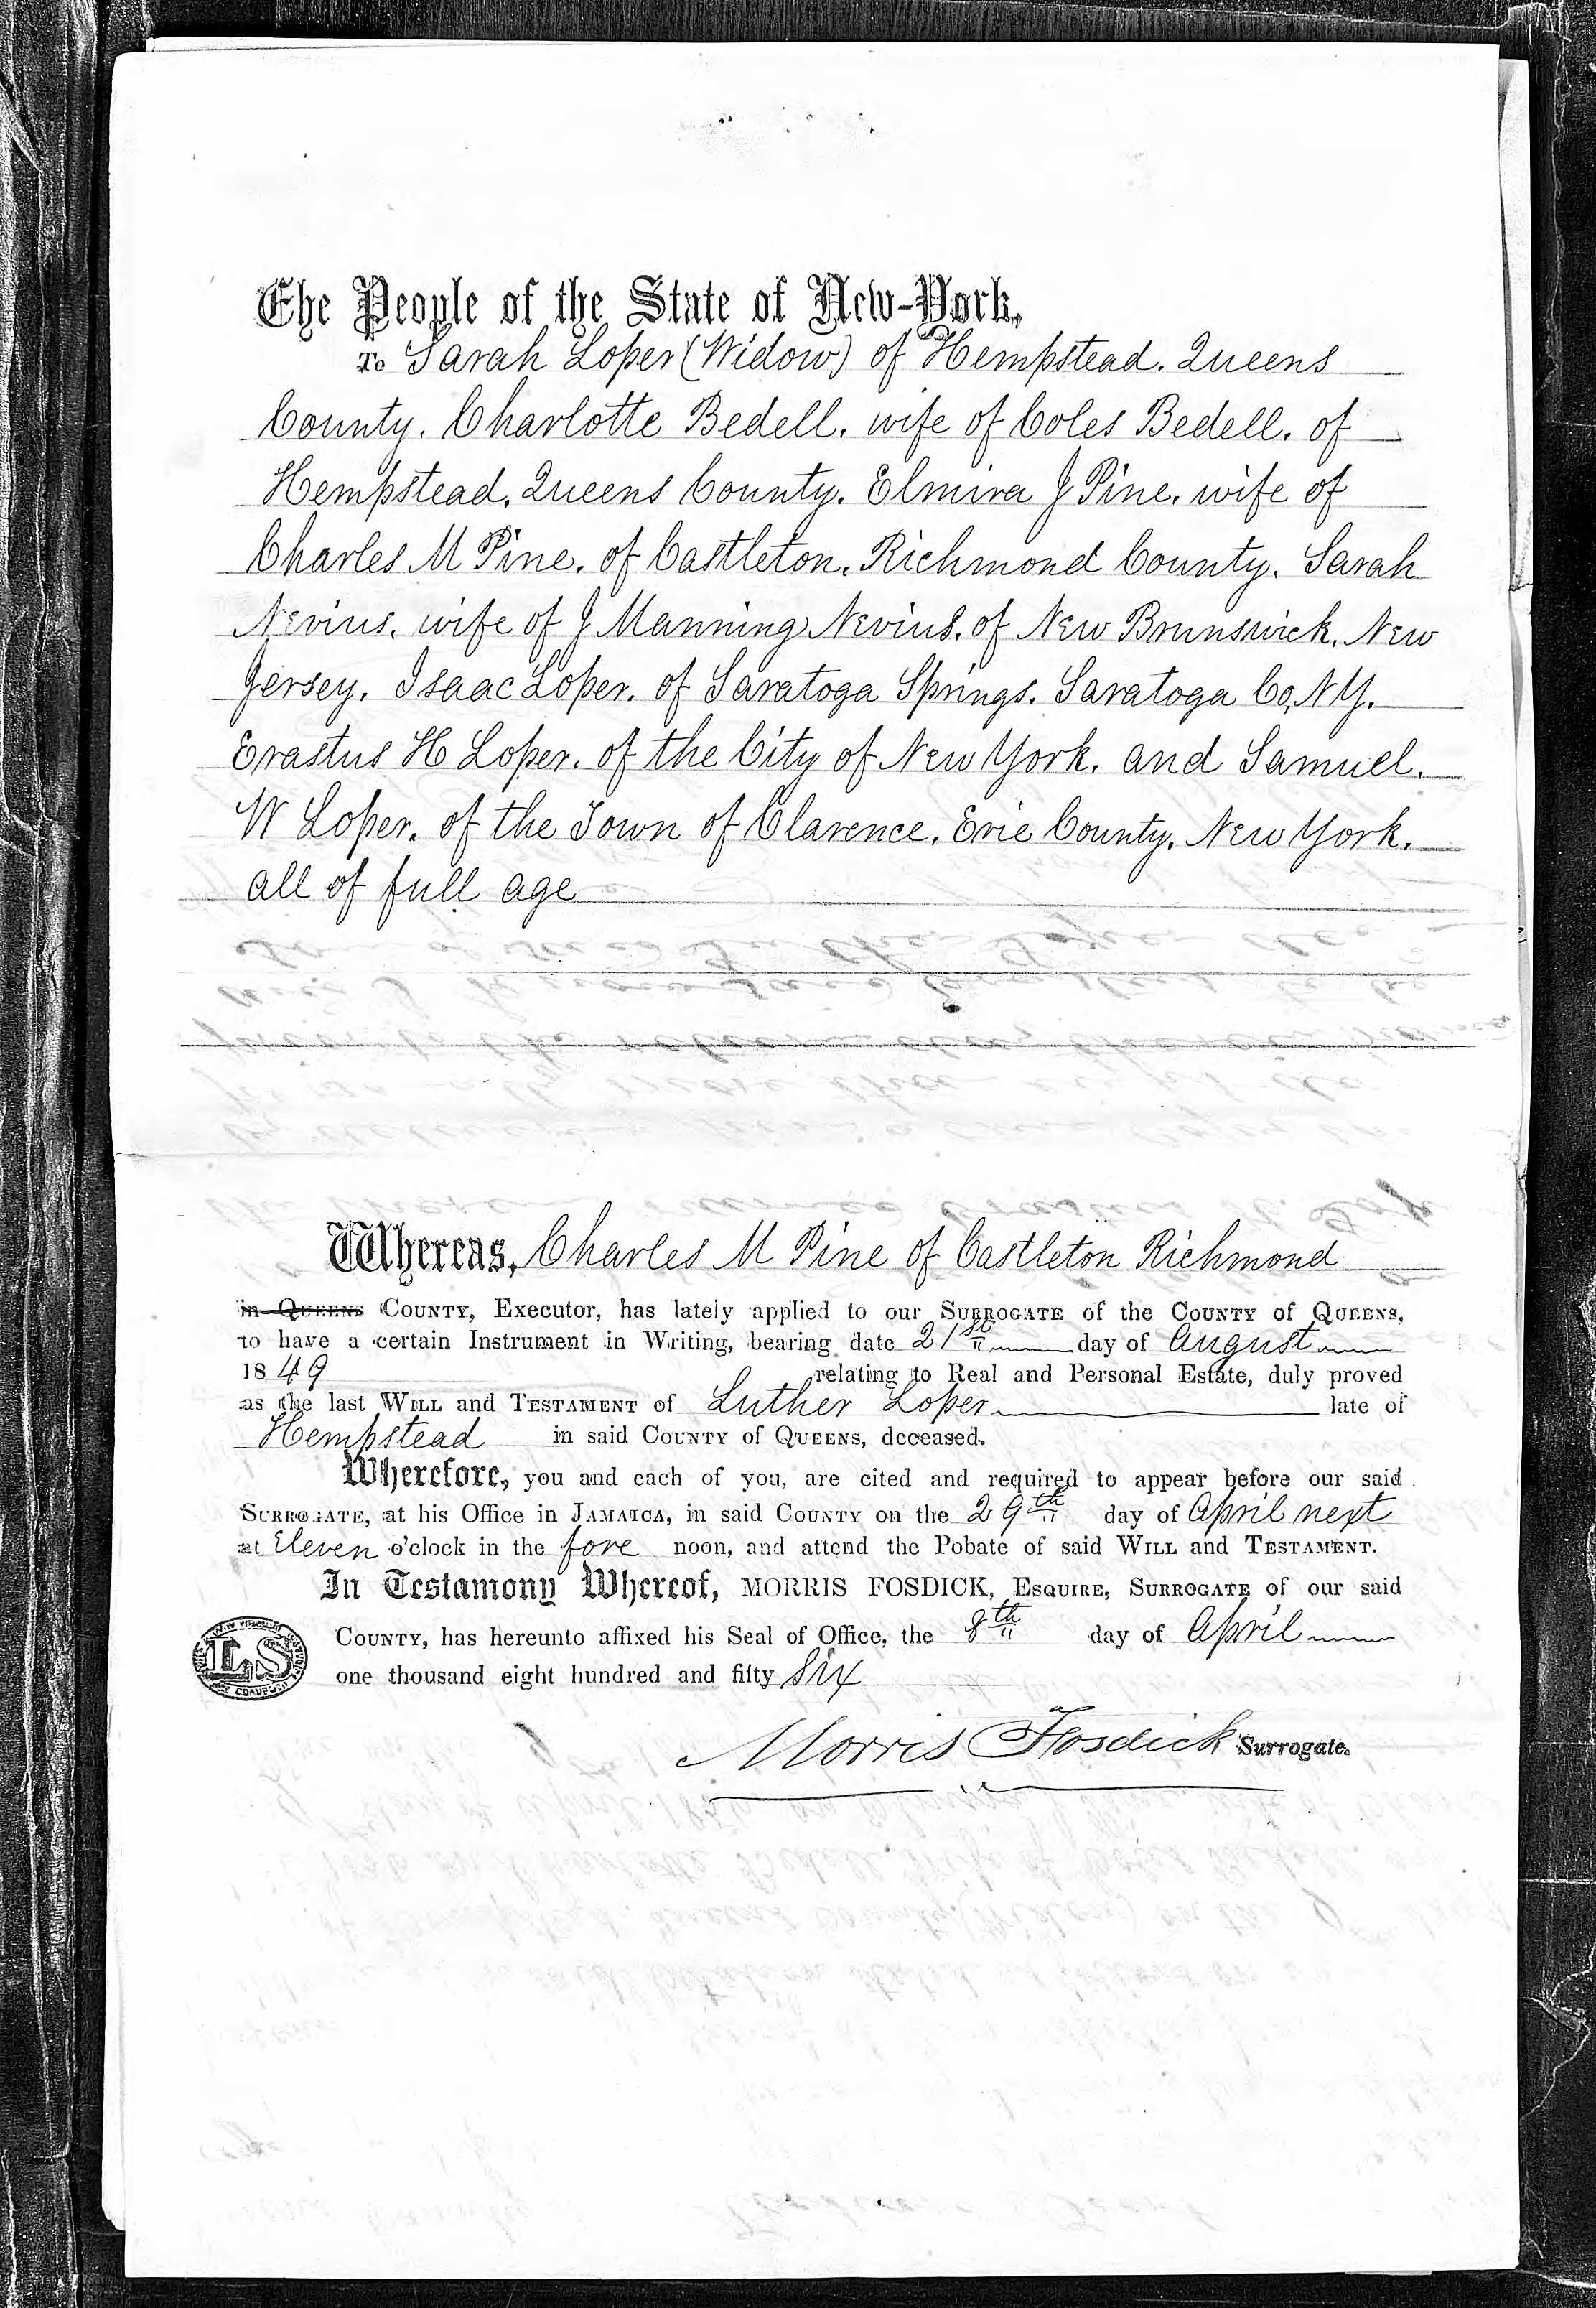 The People of the State of New-York,
To Sarah Loper (Widow) of Hempstead. Queens
County. Charlotte Bedell. wife of Coles Bedell. of
Hempstead. Queens County. Elmira J Pine. wife of
Charles M Pine. of Castleton. Richmond County. Sarah
Nevius. wife of J Manning Nevius. of New Brunswick. New
Jersey. Isaac Loper. of Saratoga Springs. Saratoga Co, N Y.
Erastus H Loper. of the City of New York. and Samuel.
W Loper. of the Town of Clarence. Erie County. New York.
all of full age
Whereas, Charles M Pine of Castleton Richmond
in Queens County, Executor, has lately applied to our Surrogate of the County of Queens,
to have a certain Instrument in Writing, bearing date 21st day of August
1849 relating to Real and Personal Estate, duly proved
as the last Will and Testament of Luther Loper late of
Hempstead in said County of Queens, deceased.
Wherefore, you and each of you, are cited and required to appear before our said
Surrogate, at his Office in Jamaica, in said County on the 29th day of April next
at Eleven o'clock in the fore noon, and attend the Pobate of said Will and Testament.
In Testamony Whereof, MORRIS FOSDICK, Esquire, Surrogate of our said
County, has hereunto affixed his Seal of Office, the 8th day of April
LS
one thousand eight hundred and fifty six
Morris Fosdick Surrogate.